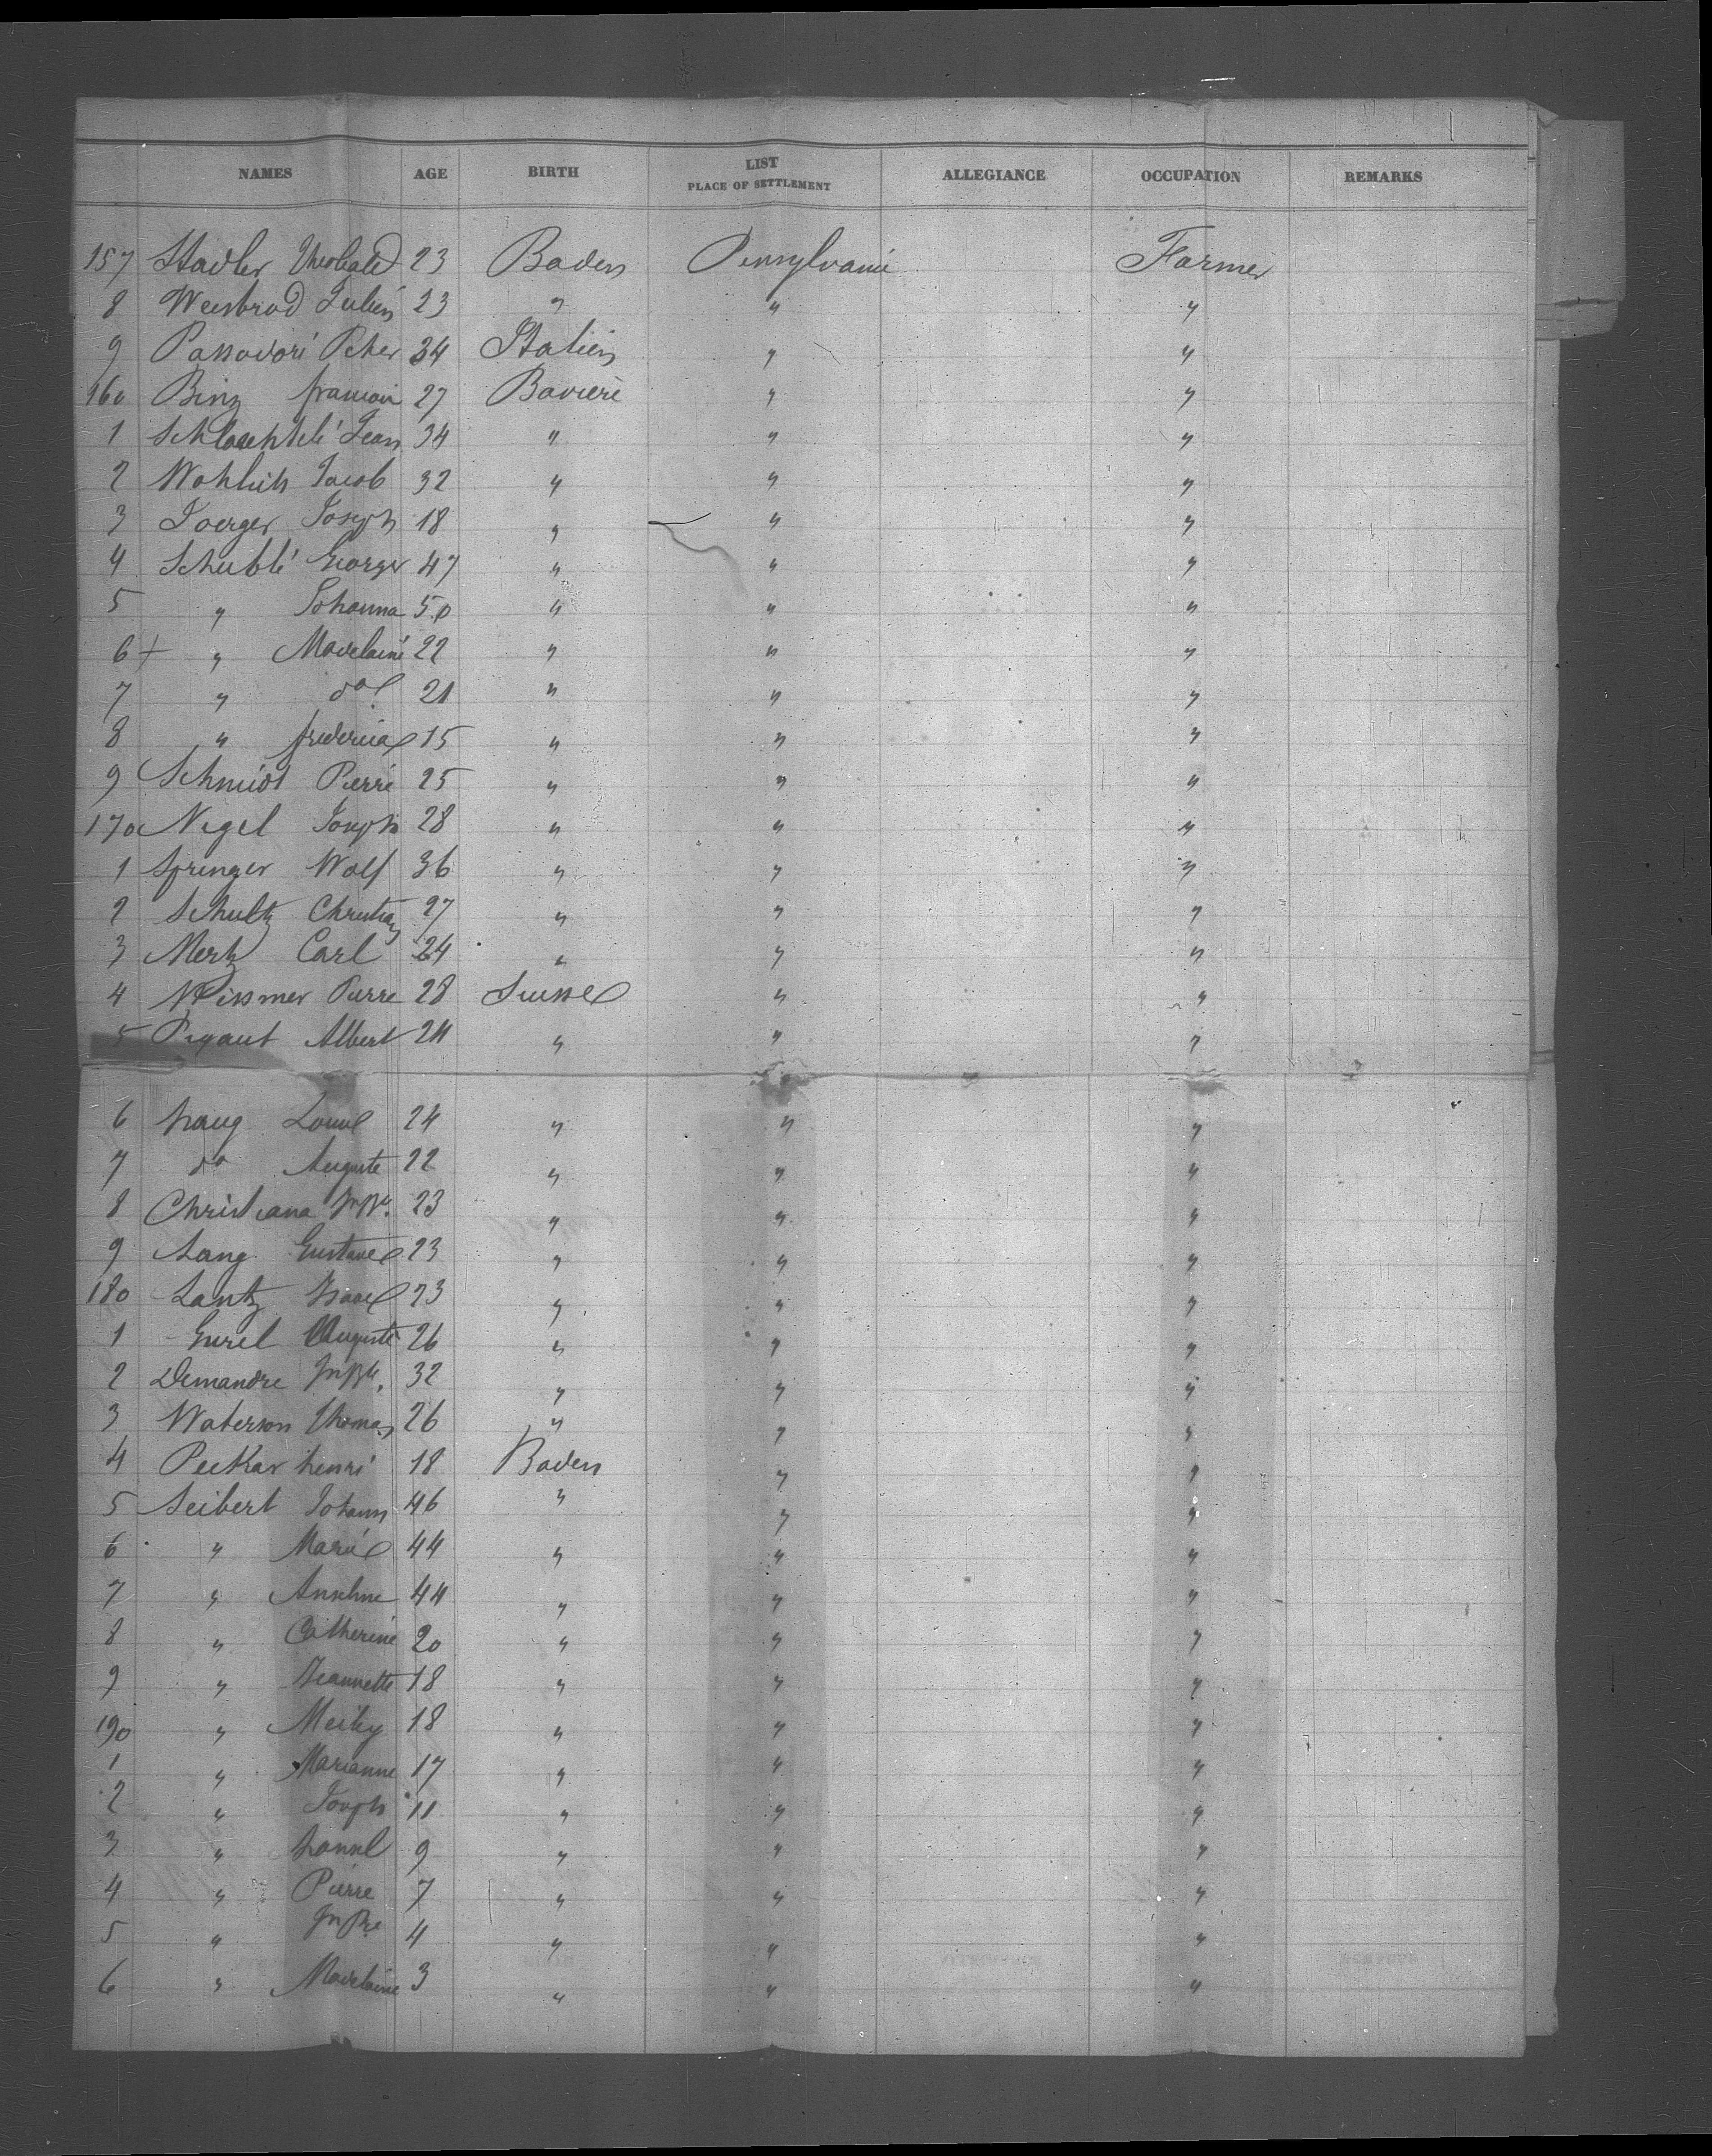 NAMES AGE BIRTH LIST PLACE OF SETTLEMENT ALLEGIANCE OCCUPATION REMARKS
157 Stadler Theobald 23 Baden Pensylvanie Farmer
8 Weisbrod Julien 23 " " "
9 Passadori Peter 34 Italien " "
160 Binz francois 27 Baviere " "
1 Jean 34 " " "
2 Wohlich Jacob 32 " " "
3 Joerger Joseph 18 " " "
4 Schublé George 47 " " "
5 " Johanna 50 " " "
6 + " Madelaine 22 " " "
7 " do 21 " " "
8 " fredericia 15 " " "
9 Schmidt Pierre 25 " " "
170 Negel Joseph 28 " " "
1 Springer Wolf 36 " " "
2 Schultz Christian 27 " " "
3 Mertz Carl 24 " " "
4 Pierre 28 Suisse " "
5 Albert 24 " " "
6 haug Louise 24 " " "
7 do Auguste 22 " " "
8 Christiana 23 " " "
9 Lang Gustave 23 " " "
180 Lantz Isaac 23 " " "
1 Auguste 26 " " "
2 Demandre 32 " " "
3 Waterson Thomas 26 " " "
4 Peckar henri 18 Baden " "
5 Seibert Johann 46 " " "
6 " Marie 44 " " "
7 " 44 " " "
8 " Catherine 20 " " "
9 " Jeannette 18 " " "
190 " 18 " " "
1 " Marianne 17 " " "
2 " Joseph 11 " " "
3 " 9 " " "
4 " Pierre 7 " " "
5 " 4 " " "
6 " Madelaine 3 " " "